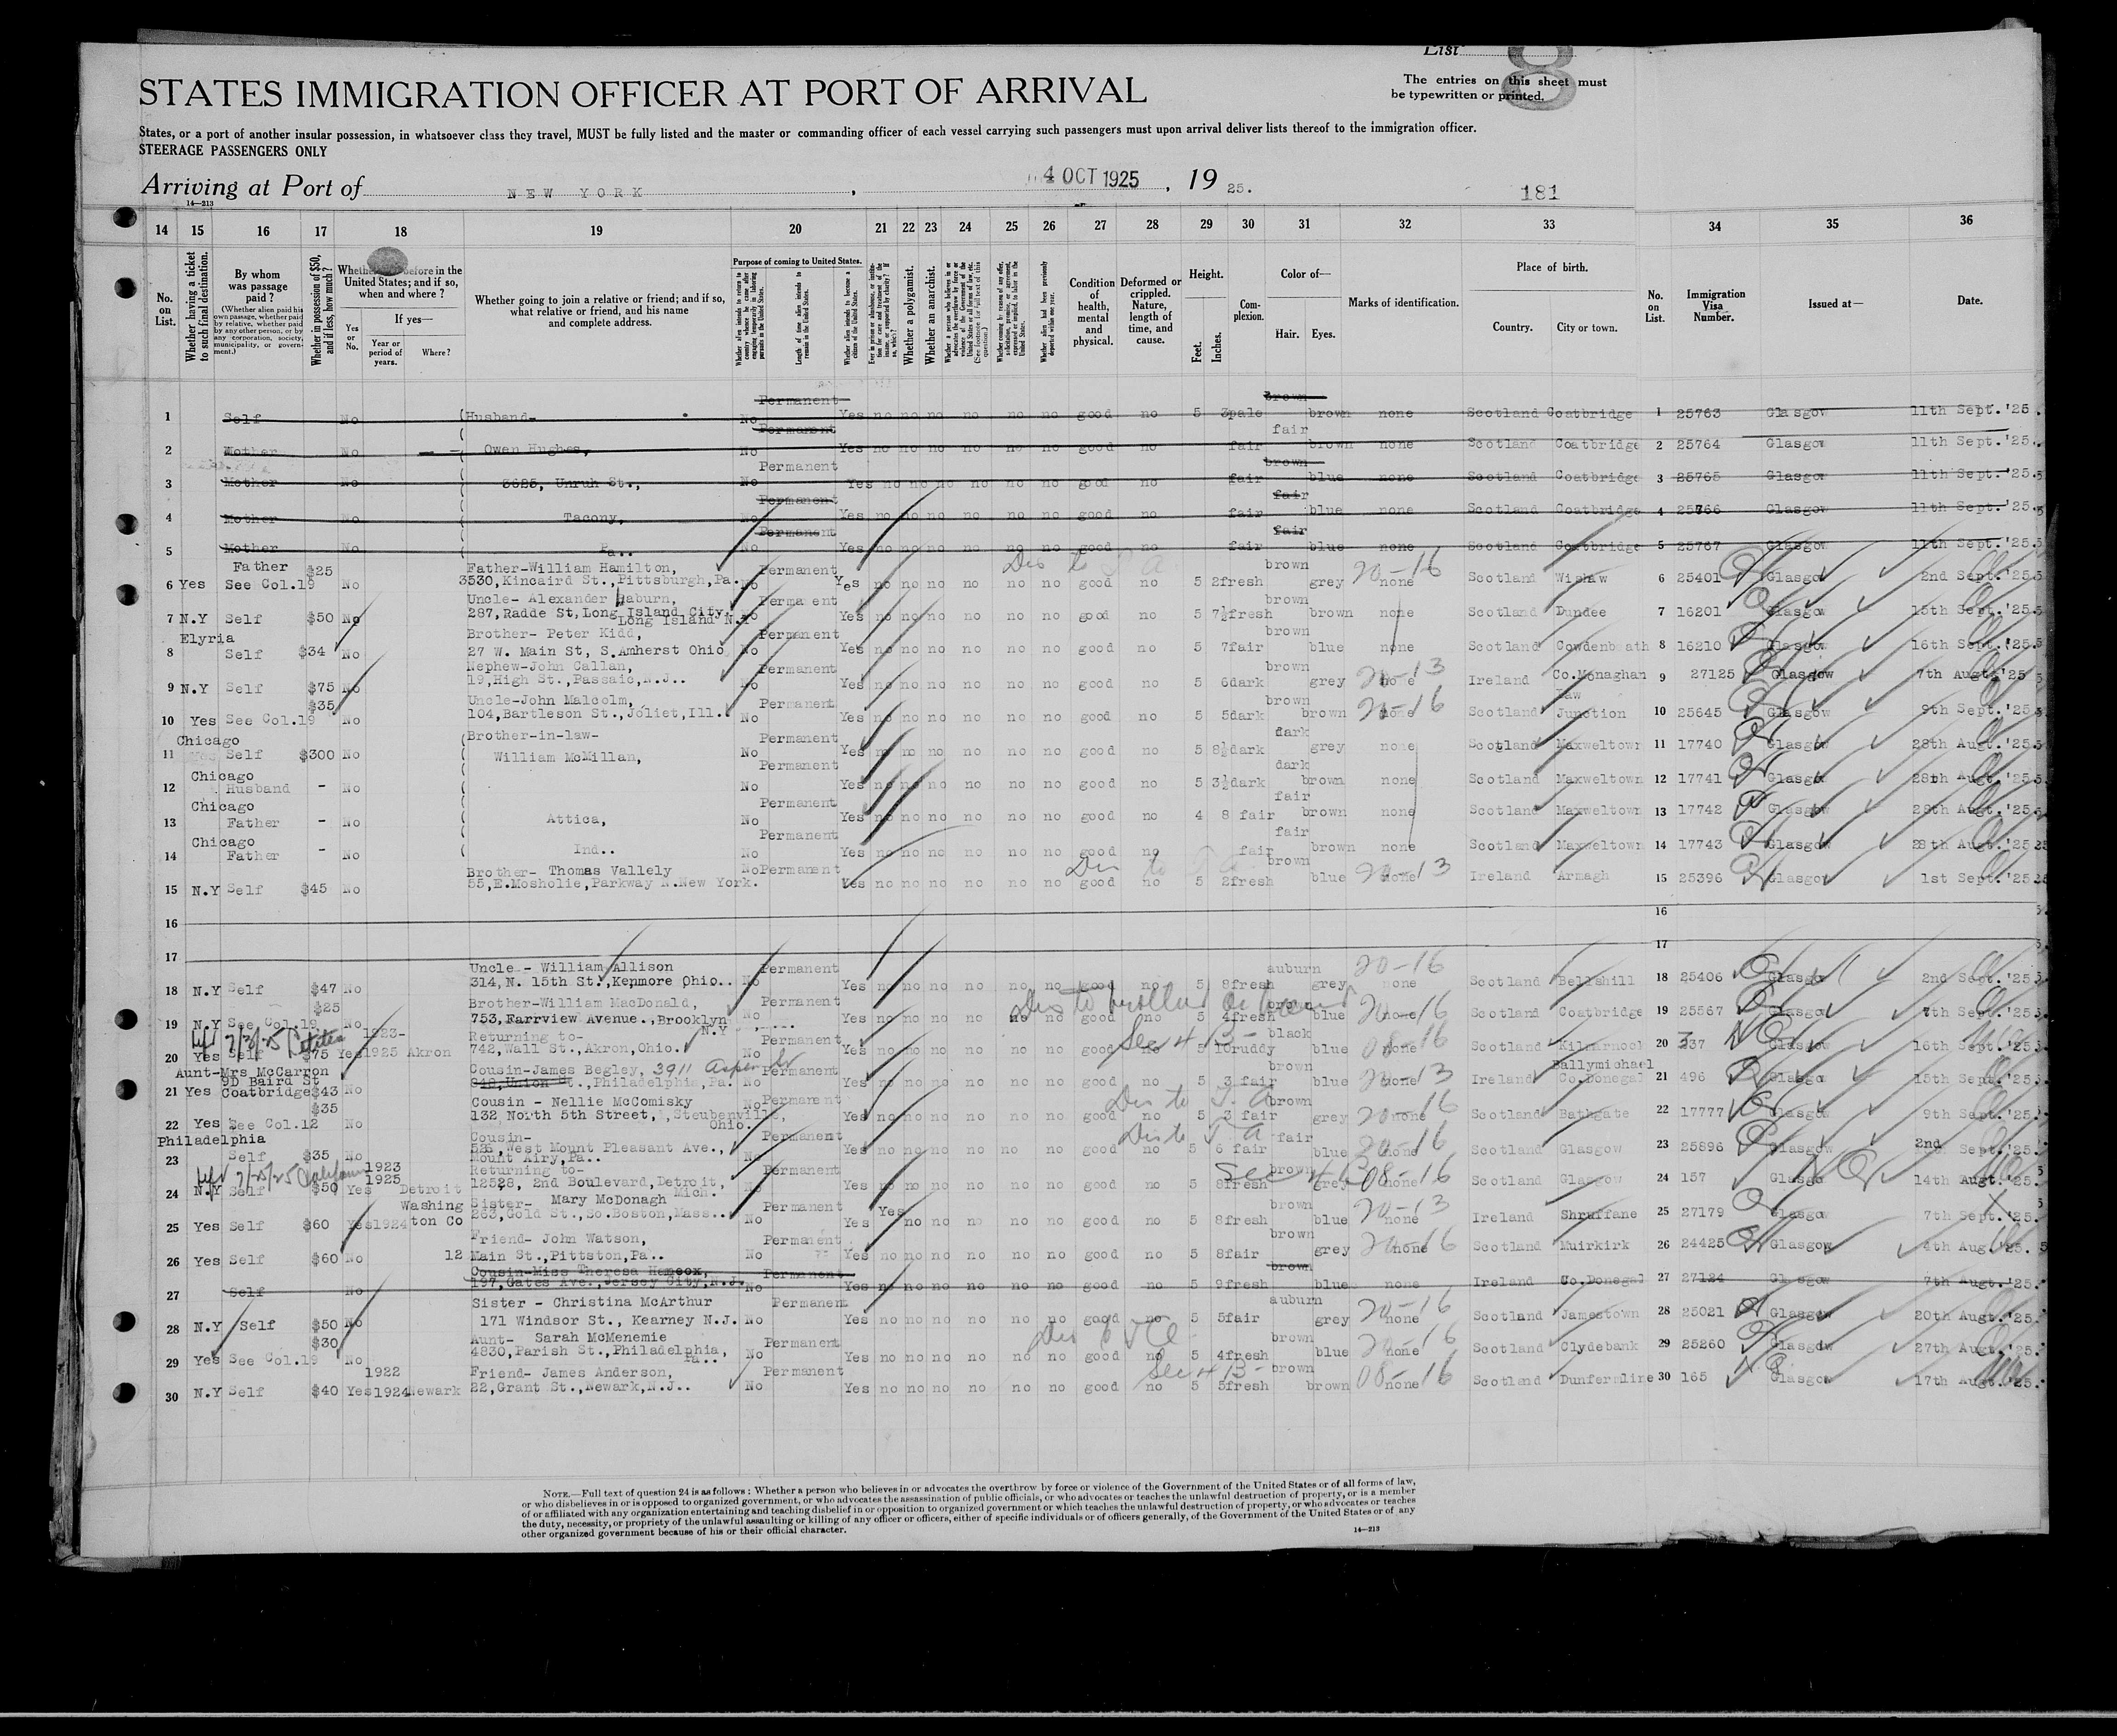 List
8
The entries on this sheet must
be typewritten or printed.
STATES IMMIGRATION OFFICER AT PORT OF ARRIVAL
States, or a port of another insular possession, in whatsoever class they travel, MUST be fully listed and the master or commanding officer of each vessel carrying such passengers must upon arrival deliver lists thereof to the immigration officer.
STEERAGE PASSENGERS ONLY
Arriving at Port of NEW YORK, 4 OCT 1925, 19 25.
181
14—213
14 15 16 17 18 19 20 21 22 23 24 25 26 27 28 29 30 31 32 33 34 35 36
No. on List.
Whether having a ticket to such final destination.
By whom was passage paid?
(Whether alien paid his own passage, whether paid by relative, whether paid by any other person, or by any corporation, society, municipality, or government.)
Whether in possession of $50, and if less, how much?
before in the United States; and if so, when and where?
Yes or No.
If yes—
Year or period of years.
Where?
Whether going to join a relative or friend; and if so, what relative or friend, and his name and complete address.
Purpose of coming to United States.
Whether alien intends to return to country whence he came after engaging temporarily in laboring pursuits in the United States.
Length of time alien intends to remain in the United States.
Whether alien intends to become a citizen of the United States.
Whether a polygamist.
Whether an anarchist.
Condition of health, mental and physical.
Deformed or crippled. Nature, length of time, and cause.
Height.
Feet.
Inches.
Complexion.
Color of—
Hair.
Eyes.
Marks of identification.
Place of birth.
Country.
City or town.
No. on List.
Immigration Visa Number.
Issued at—
Date.
1 Self No (Husband- No Permanent Yes no no no no no no good no 5 3 pale brown brown none Scotland Coatbridge 1 25763 Glasgow 11th Sept.'25.
2 Mother No Owen Hughes, No Permanent Yes no no no no no no good no fair fair brown none Scotland Coatbridge 2 25764 Glasgow 11th Sept.'25.
3 Mother No 3625, Unruh St., No Permanent Yes no no no no no no good no fair brown blue none Scotland Coatbridge 3 25765 Glasgow 11th Sept.'25.
4 Mother No Tacony, No Permanent Yes no no no no no no good no fair fair blue none Scotland Coatbridge 4 25766 Glasgow 11th Sept.'25.
5 Mother No Pa.. No Permanent Yes no no no no no no good no fair fair blue none Scotland Coatbridge 5 25767 Glasgow 11th Sept.'25
Father $25 Father-William Hamilton, Permanent brown 20-16
6 Yes See Col.19 No 3530,Kincaird St.,Pittsburgh,Pa. No Yes no no no no no no good no 5 2 fresh grey none Scotland Wishaw 6 25401 Glasgow 2nd Sept.'25
Uncle- Alexander Haburn, brown
7 N.Y Self $50 No 287,Radde St,Long Island City, Long Island N.Y No Yes no no no no no no good no 5 7½ fresh brown none Scotland Dundee 7 16201 Glasgow 15th Sept.'25
Elyria Brother- Peter Kidd, Permanent brown
8 Self $34 No 27 W. Main St, S.Amherst Ohio No Yes no no no no no no good no 5 7 fair blue none Scotland Cowdenbeath 8 16210 Glasgow 16th Sept.'25
Nephew-John Callan, Permanent brown 20-13
9 N.Y Self $75 No 19,High St.,Passaic,N.J.. No Yes no no no no no no good no 5 6 dark grey none Ireland Co.Monaghan 9 27125 Glasgow 7th Augt.'25
$35 Uncle-John Malcolm, Permanent brown 20-16
10 Yes See Col.19 No 104,Bartleson St.,Joliet,Ill.. No Yes no no no no no no good no 5 5 dark brown none Scotland Law Junction 10 25645 Glasgow 9th Sept.'25
Chicago (Brother-in-law- Permanent dark
11 Self $300 No William McMillan, No Yes no no no no no no good no 5 8½ dark grey none Scotland Maxweltown 11 17740 Glasgow 28th Augt.'25
Chicago Permanent dark
12 Husband - No No Yes no no no no no no good no 5 3½ dark brown none Scotland Maxweltown 12 17741 Glasgow 28th Augt.'25
Chicago Permanent fair
13 Father - No Attica, No Yes no no no no no no good no 4 8 fair brown none Scotland Maxweltown 13 17742 Glasgow 28th Augt.'25
Chicago Permanent fair
14 Father - No Ind.. No Yes no no no no no no good no fair brown none Scotland Maxweltown 14 17743 Glasgow 28th Augt.'25
Brother- Thomas Vallely No Permanent brown 20-13
15 N.Y Self $45 No 55,E.Mosholie,Parkway N.New York. Yes no no no no no no good no 5 2 fresh blue none Ireland Armagh 15 25396 Glasgow 1st Sept.'25
16 16
17 17
Uncle - William Allison Permanent auburn 20-16
18 N.Y Self $47 No 314,N. 15th St.,Kenmore Ohio.. No Yes no no no no no no good no 5 8 fresh grey none Scotland Bellshill 18 25406 Glasgow 2nd Sept.'25
$25 Brother-William MacDonald, Permanent
19 N.Y See Col.19 No 753,Farrview Avenue.,Brooklyn N.Y No Yes no no no no no no good no 5 4 fresh blue none 20-16 Scotland Coatbridge 19 25567 Glasgow 7th Sept.'25
1923- Returning to- Permanent Sec 4 B- black
20 Yes Self $75 Yes 1925 Akron 742,Wall St.,Akron,Ohio. No Yes no no no no no no good no 5 10 ruddy blue none 08-16 Scotland Kilmarnock 20 337 Glasgow 16th Sept.'25
Aunt-Mrs McCarron 9D Baird St Cousin-James Begley, 3911 Permanent brown Ballymichael
21 Yes Coatbridge $43 No 848,Union St.,Philadelphia,Pa. No Yes no no no no no no good no 5 3 fair blue none 20-13 Ireland Co.Donegal 21 496 Glasgow 15th Sept.'25
$35 Cousin - Nellie McComisky No Permanent brown
22 Yes See Col.12 No 132 North 5th Street, Steubenville, Ohio. Yes no no no no no no good no 5 3 fair grey none 20-16 Scotland Bathgate 22 17777 Glasgow 9th Sept.'25
Philadelphia Cousin- Permanent fair
23 Self $35 No 525,West Mount Pleasant Ave., Mount Airy,Pa.. No Yes no no no no no no good no 5 6 fair blue none 20-16 Scotland Glasgow 23 25896 Glasgow 2nd Sept.'25
1923 1925 Returning to- Permanent Sec 4 B brown 08-16
24 N.Y Self $50 Yes Detroit 12528, 2nd Boulevard,Detroit, Mich. No Yes no no no no no no good no 5 8 fresh grey none Scotland Glasgow 24 157 Glasgow 14th Augt.'25.
Washington Co Sister- Mary McDonagh Permanent brown 20-13
25 Yes Self $60 Yes 1924 263,Gold St.,So.Boston,Mass.. No Yes Yes no no no no no good no 5 8 fresh blue none Ireland Shruffane 25 27179 Glasgow 7th Sept.'25.
Friend- John Watson, Permanent brown
26 Yes Self $60 No 12 Main St.,Pittston,Pa.. No Yes no no no no no no good no 5 8 fair grey none 20-16 Scotland Muirkirk 26 24425 Glasgow 4th Aug.'25.
Cousin-Miss Theresa Hancox, Permanent brown
27 Self No 197,Gates Ave.,Jersey City,N.J. No Yes no no no no no no good no 5 9 fresh blue none Ireland Co.Donegal 27 27124 Glasgow 7th Augt.'25.
Sister - Christina McArthur Permanent auburn 20-16
28 N.Y Self $50 No 171 Windsor St., Kearney N.J. No Yes no no no no no no good no 5 5 fair grey none Scotland Jamestown 28 25021 Glasgow 20th Augt.'25.
$30 Aunt- Sarah McMenemie Permanent brown 20-16
29 Yes See Col.19 No 4830,Parish St.,Philadelphia, Pa.. No Yes no no no no no no good no 5 4 fresh blue none Scotland Clydebank 29 25260 Glasgow 27th Augt.'25.
1922 Friend- James Anderson, Permanent Sec 4 B- brown
30 N.Y Self $40 Yes 1924 Newark 22,Grant St.,Newark,N.J.. No Yes no no no no no no good no 5 5 fresh brown none 08-16 Scotland Dunfermline 30 165 Glasgow 17th Augt.'25.
NOTE.—Full text of question 24 is as follows: Whether a person who believes in or advocates the overthrow by force or violence of the Government of the United States or of all forms of law,
or who disbelieves in or is opposed to organized government, or who advocates the assassination of public officials, or who advocates or teaches the unlawful destruction of property, or is a member
of or affiliated with any organization entertaining and teaching disbelief in or opposition to organized government or which teaches the unlawful destruction of property, or who advocates or teaches
the duty, necessity, or propriety of the unlawful assaulting or killing of any officer or officers, either of specific individuals or of officers generally, of the Government of the United States or of any
other organized government because of his or their official character.
14—213